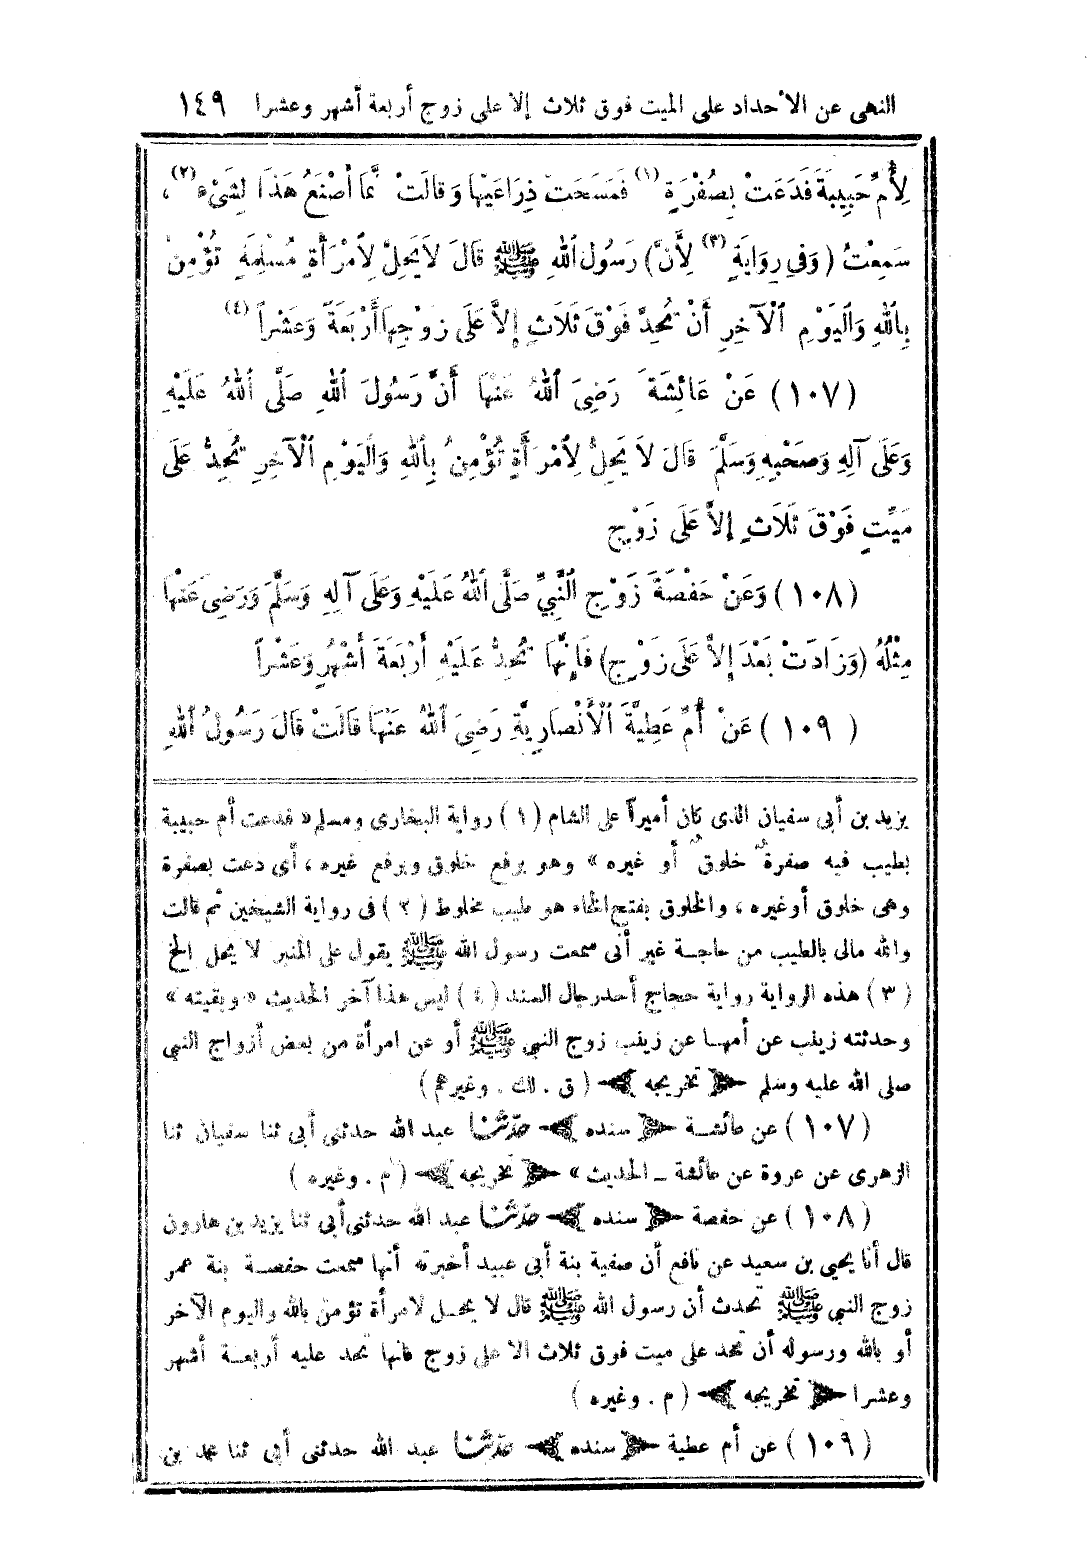 النهى عن الأحداد على الميت فوق ثلاث إلا على زوج أربعة أشهر وعشرا ١٤٩
لِأُمِّ حَبِيبَةَ فَدَعَتْ بِصُفْرَةٍ (١) فَمَسَحَتْ ذِرَاعَيْهَا وَقَالَتْ إِنَّمَا أَصْنَعُ هَذَا لِشَىْءٍ (٢) ،
سَمِعْتُ (وَفِى رِوَايَةٍ (٣) لِأَنَّ) رَسُولَ اللهِ ﷺ قَالَ لاَيَحِلُّ لِامْرَأَةٍ مُسْلِمَةٍ تُؤْمِنُ
بِاللهِ وَالْيَوْمِ الْآخِرِ أَنْ تُحِدَّ فَوْقَ ثَلَاثٍ إِلاَّ عَلَى زَوْجِهَا أَرْبَعَةً وَعَشْراً (٤)
(١٠٧) عَنْ عَائِشَةَ رَضِىَ اللهُ عَنْهَا أَنَّ رَسُولَ اللهِ صَلَّى اللهُ عَلَيْهِ
وَعَلَى آلِهِ وَصَحْبِهِ وَسَلَّمَ قَالَ لاَ يَحِلُّ لِامْرَأَةٍ تُؤْمِنُ بِاللهِ وَالْيَوْمِ الْآخِرِ تُحِدُّ عَلَى
مَيِّتٍ فَوْقَ ثَلَاثٍ إِلاَّ عَلَى زَوْجٍ
(١٠٨) وَعَنْ حَفْصَةَ زَوْجِ النَّبِيِّ صَلَّى اللهُ عَلَيْهِ وَعَلَى آلِهِ وَسَلَّمَ وَرَضِىَ عَنْهَا
مِثْلُهُ (وَزَادَتْ بَعْدَ إِلاَّ عَلَى زَوْجٍ) فَإِنَّهَا تُحِدُّ عَلَيْهِ أَرْبَعَةَ أَشْهُرٍ وَعَشْراً
(١٠٩) عَنْ أُمِّ عَطِيَّةَ الْأَنْصَارِيَّةِ رَضِىَ اللهُ عَنْهَا قَالَتْ قَالَ رَسُولُ اللهِ
يزيد بن أبى سفيان الذى كان أميراً على الشام (١) رواية البخارى ومسلم « فدعت أم حبيبة
بطيب فيه صفرة خلوق أو غيره » وهو برفع خلوق وبرفع غيره ، أى دعت بصفرة
وهى خلوق أوغيره ، والخلوق بفتح الخاء هو طيب مخلوط (٢) فى رواية الشيخين ثم قالت
والله مالى بالطيب من حاجة غير أنى سمعت رسول الله ﷺ يقول على المنبر لا يحل الخ
(٣) هذه الرواية رواية حجاج أحد رجال السند (٤) ليس هذا آخر الحديث « وبقيته »
وحدثته زينب عن أمها عن زينب زوج النبى ﷺ أو عن امرأة من بعض أزواج النبى
صلى الله عليه وسلم ﴿ تخريجه ﴾ ( ق . لك . وغيرهم )
(١٠٧) عن عائشة ﴿ سنده ﴾ حَدَّثَنَا عبد الله حدثنى أبى ثنا سفيان ثنا
الزهرى عن عروة عن عائشة ـ الحديث » ﴿ تخريجه ﴾ ( م . وغيره )
(١٠٨) عن حفصة ﴿ سنده ﴾ حَدَّثَنَا عبد الله حدثنى أبى ثنا يزيد بن هارون
قال أنا يحيى بن سعيد عن نافع أن صفية بنة أبى عبيد أخبرته أنها سمعت حفصة بنة عمر
زوج النبى ﷺ تحدث أن رسول الله ﷺ قال لا يحل لامرأة تؤمن بالله واليوم الآخر
أو بالله ورسوله أن تحد على ميت فوق ثلاث الا على زوج فانها تحد عليه أربعة أشهر
وعشرا ﴿ تخريجه ﴾ ( م . وغيره )
(١٠٩) عن أم عطية ﴿ سنده ﴾ حَدَّثَنَا عبد الله حدثنى أبى ثنا محمد بن